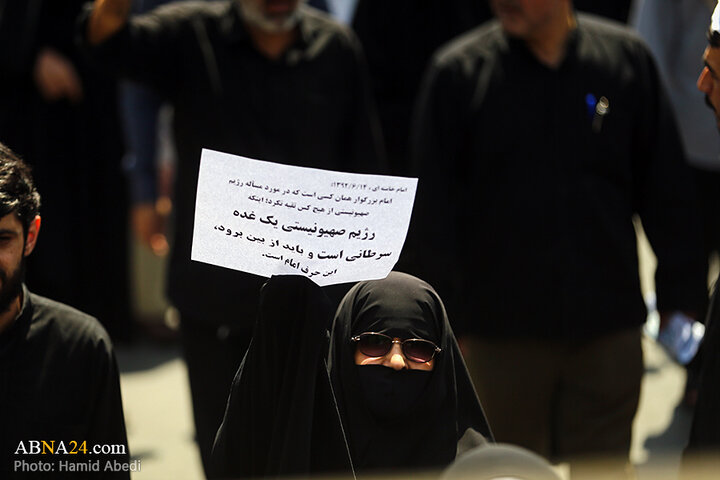 امام خامنه ای، ۱۳۹۲/۶/۱۴:
امام بزرگوار همان کسی است که در مورد مسأله رژیم
صهیونیستی از هیچ کس تقیه نکرد؛ اینکه
رژیم صهیونیستی یک غده
سرطانی است و باید از بین برود،
این حرف امام است.
ABNA24.com
Photo: Hamid Abedi